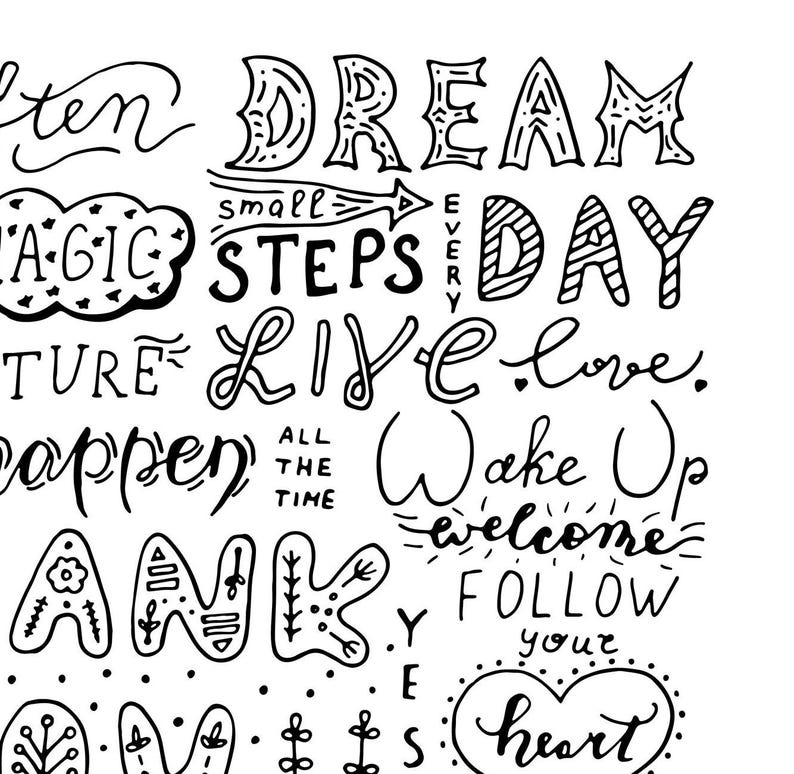 ften DREAM
small
MAGIC STEPS EVERY DAY
TURE LIVE love.
happen ALL
THE
TIME
Wake Up
welcome
ANK FOLLOW
your
YES
heart